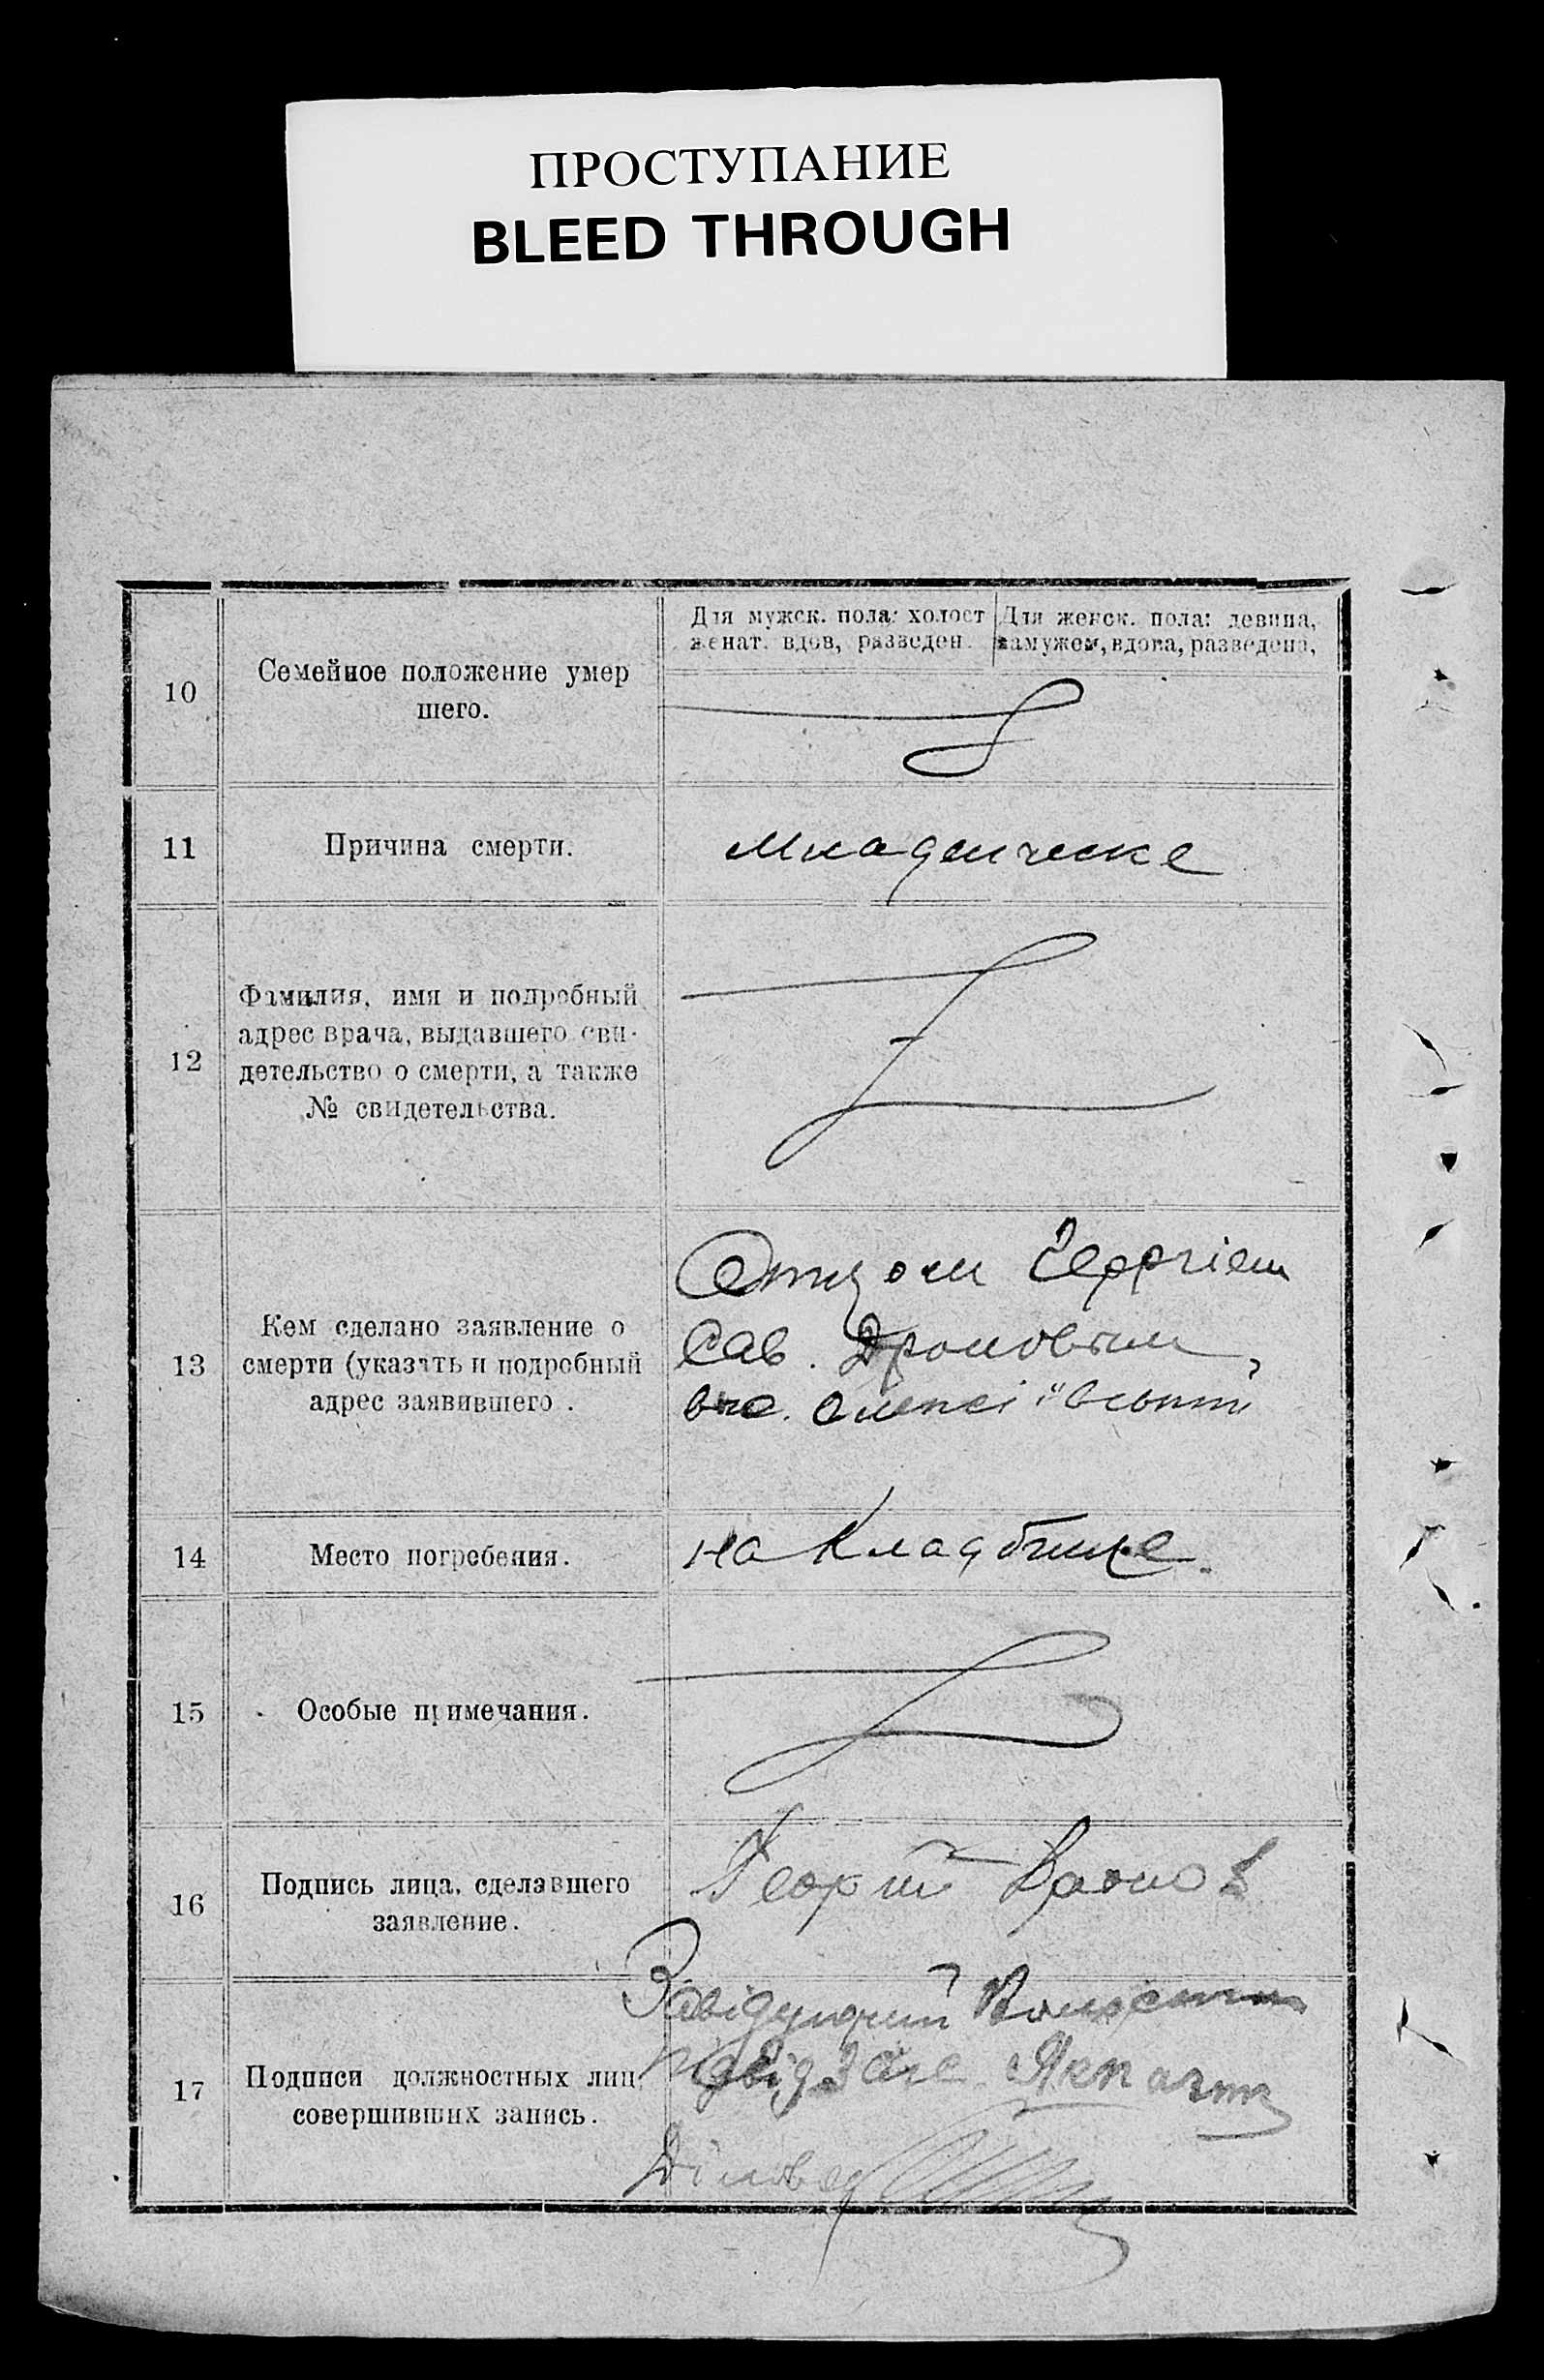 ПРОСТУПАНИЕ
BLEED THROUGH
10
Семейное положение умер
шего.
Для мужск. пола: холост
женат. вдов, разведен.
Для женск. пола: девица,
замужем, вдова, разведена,
11
Причина смерти.
Младенческе
12
Фамилия, имя и подробный
адрес врача, выдавшего сви-
детельство о смерти, а также
№ свидетельства.
13
Кем сделано заявление о
смерти (указать и подробный
адрес заявившего .
Отцом
Сав. Дроновым,
14
Место погребения.
на Кладбище.
15
Особые примечания.
16
Подпись лица, сделавшего
заявление.
17
Подписи должностных лиц,
совершивших запись.
Завідующий
Діловод